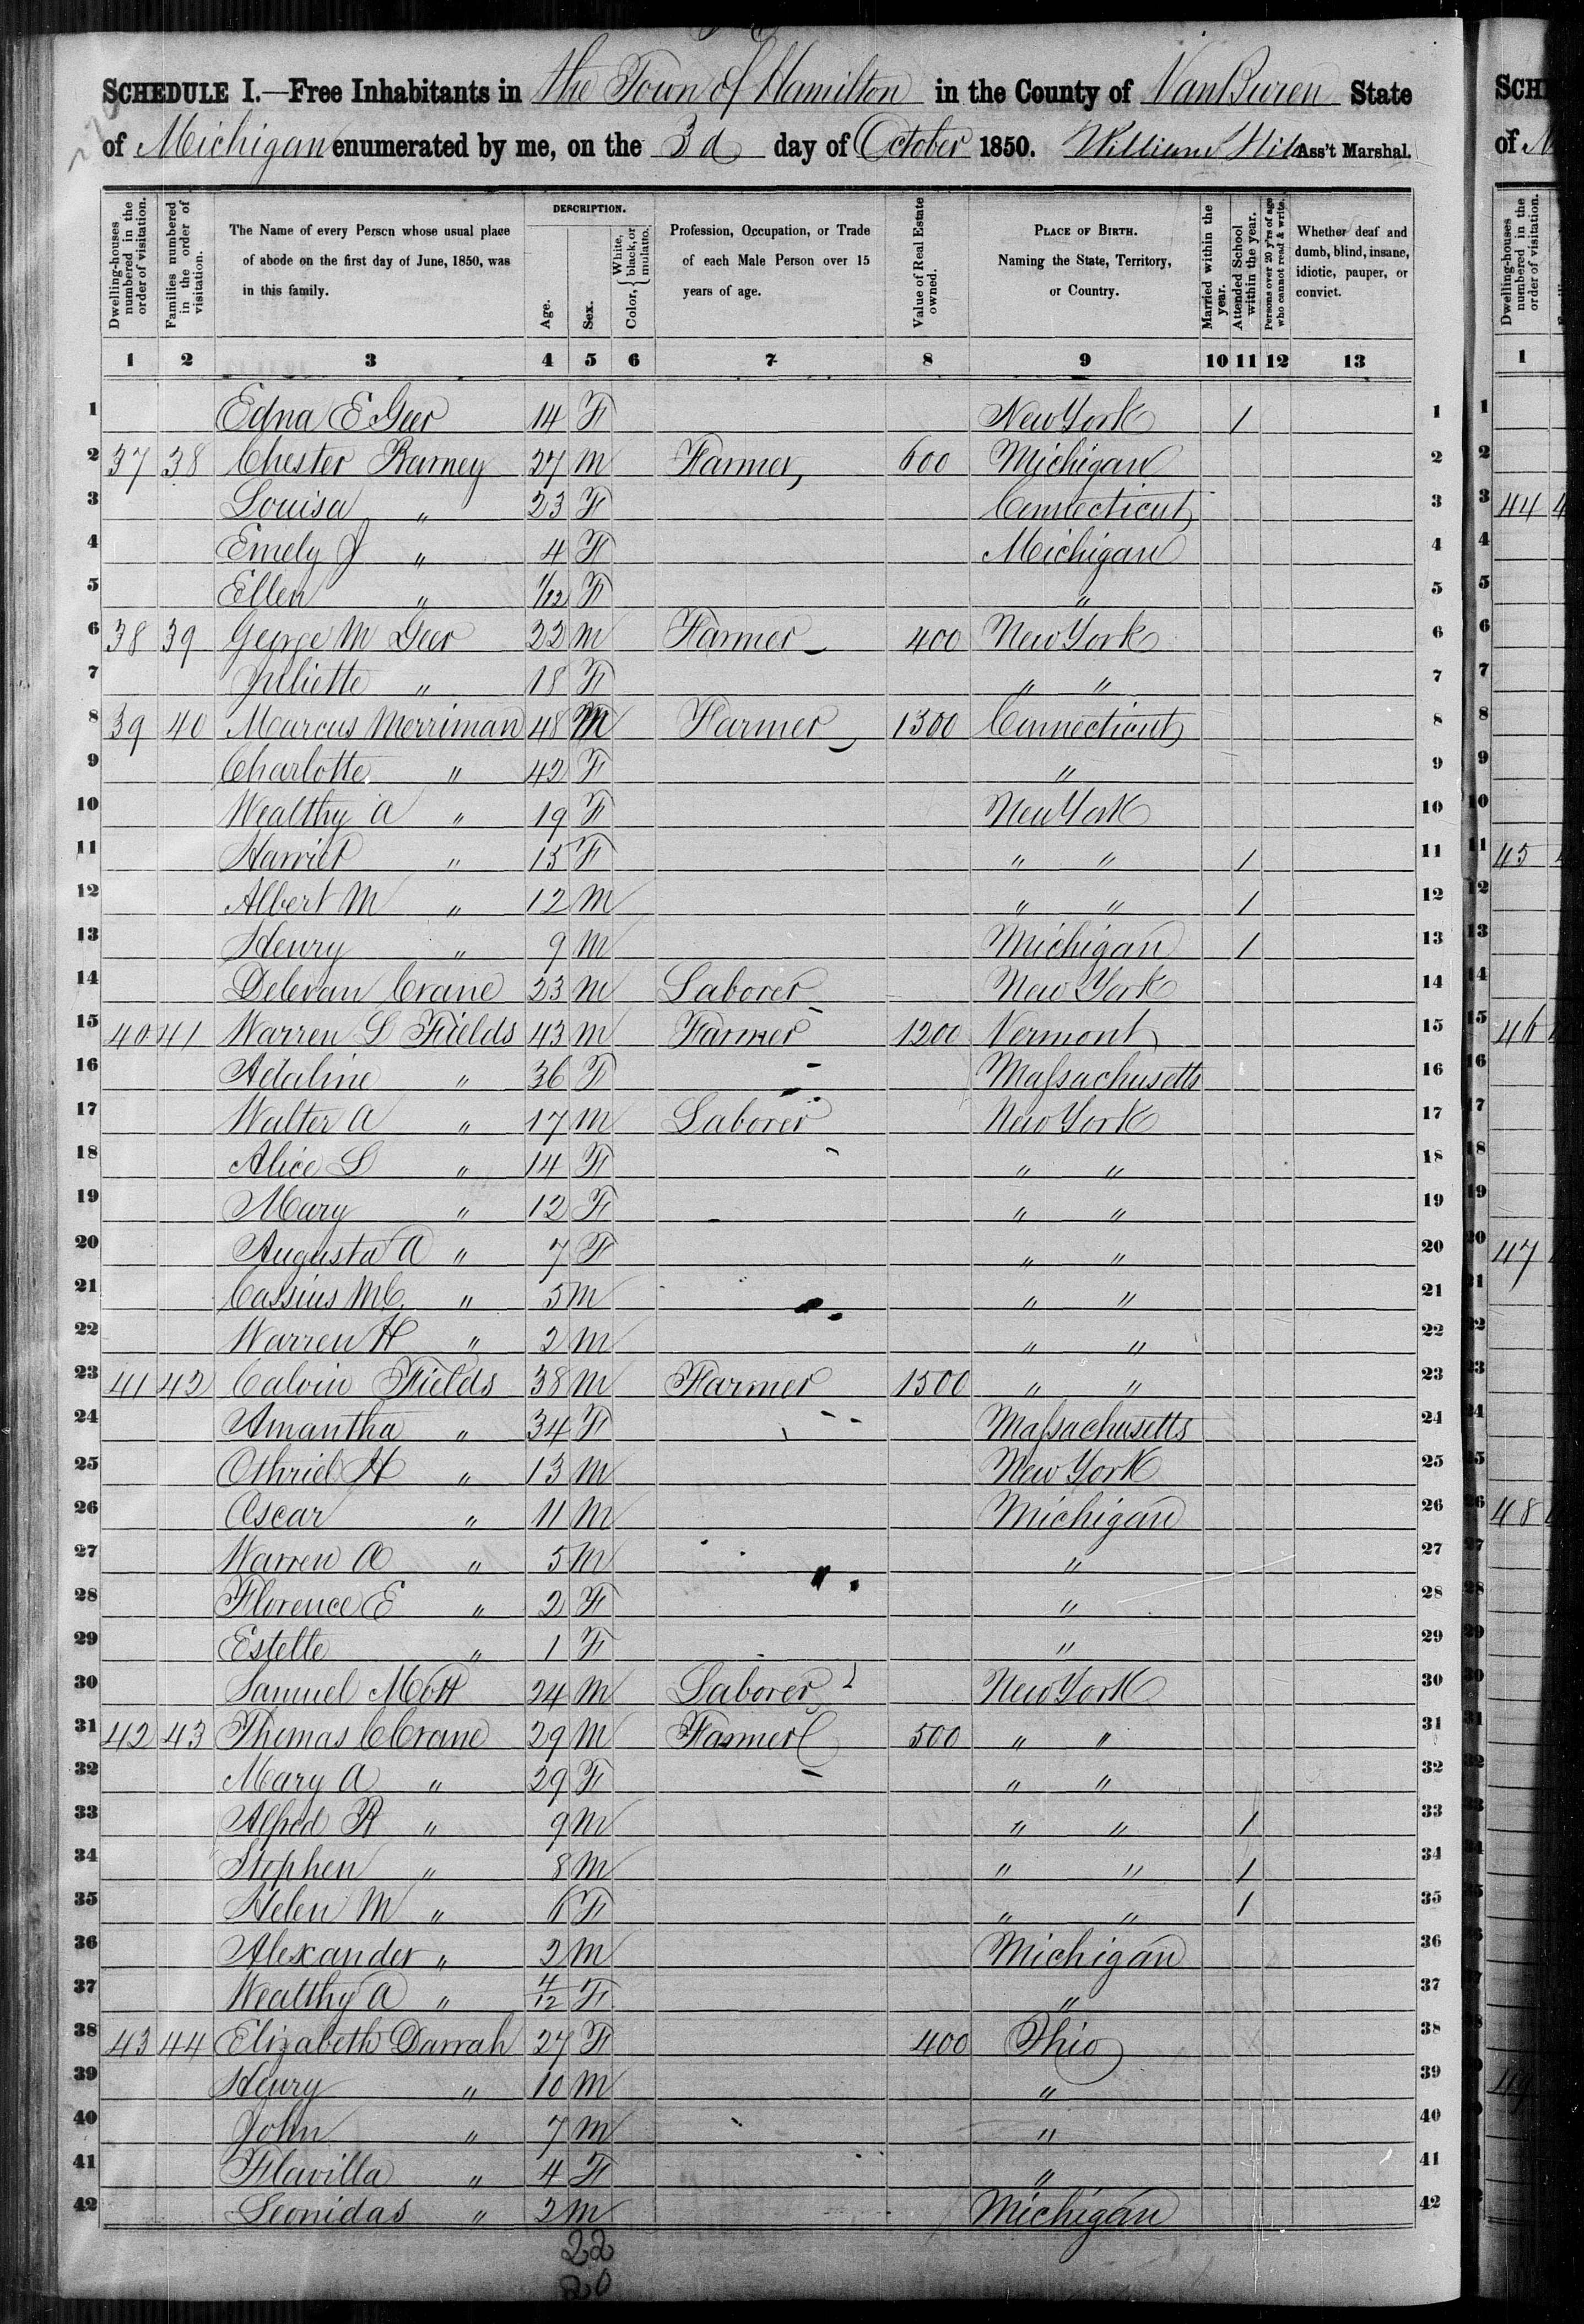 SCHEDULE I.—Free Inhabitants in the Town of Hamilton in the County of VanBuren State
of Michigan enumerated by me, on the 3d day of October 1850. William Ass't Marshal.
Dwelling-houses numbered in the order of visitation. Families numbered in the order of visitation. The Name of every Person whose usual place of abode on the first day of June, 1850, was in this family. DESCRIPTION. Age. Sex. Color, { White, black, or mulatto. Profession, Occupation, or Trade of each Male Person over 15 years of age. Value of Real Estate owned. PLACE OF BIRTH. Naming the State, Territory, or Country. Married within the year. Attended School within the year. Persons over 20 y'rs of age who cannot read & write. Whether deaf and dumb, blind, insane, idiotic, pauper, or convict.
1 2 3 4 5 6 7 8 9 10 11 12 13
1 Edna E Geer 14 F New York 1 1
2 37 38 Chester Barney 27 M Farmer 600 Michigan 2
3 Louisa " 23 F Connecticut 3
4 Emely J " 4 F Michigan 4
5 Ellen " 1/12 F " 5
6 38 39 George M Geer 22 M Farmer 400 New York 6
7 Juliette " 18 F " " 7
8 39 40 Marcus Merriman 48 M Farmer 1300 Connecticut 8
9 Charlotte " 42 F " 9
10 Wealthy A " 19 F New York 10
11 Harriet " 15 F " " 1 11
12 Albert M " 12 M " " 1 12
13 Henry " 9 M Michigan 1 13
14 Delevan Crane 23 M Laborer New York 14
15 40 41 Warren L Fields 43 M Farmer 1200 Vermont 15
16 Adaline " 36 F Massachusetts 16
17 Walter A " 17 M Laborer New York 17
18 Alice L " 14 F " " 18
19 Mary " 12 F " " 19
20 Augusta A " 7 F " " 20
21 Cassius MC. " 5 M " " 21
22 Warren H " 2 M " " 22
23 41 42 Calvin Fields 38 M Farmer 1500 " " 23
24 Amantha " 34 F Massachusetts 24
25 Othniel H " 13 M New York 25
26 Oscar " 11 M Michigan 26
27 Warren O " 5 M " 27
28 Florence E " 2 F " 28
29 Estelle " 1 F " 29
30 Samuel Mott 24 M Laborer New York 30
31 42 43 Thomas C Crane 29 M Farmer 500 " " 31
32 Mary A " 29 F " " 32
33 Alfred R " 9 M " " 1 33
34 Stephen " 8 M " " 1 34
35 Helen M " 6 F " " 1 35
36 Alexander " 2 M Michigan 36
37 Wealthy A " 4/12 F " 37
38 43 44 Elizabeth Darrah 27 F 400 Ohio 38
39 Henry " 10 M " 39
40 John " 7 M " 40
41 Flavilla " 4 F " 41
42 Leonidas " 2 M Michigan 42
22
20
SCH
of M
Dwelling-houses numbered in the order of visitation.
1
1
2
3 44
4
5
6
7
8
9
10
11 45
12
13
14
15 46
16
17
18
19
20 47
21
22
23
24
25
26 48
27
28
29
30
31
32
33
34
35
36
37
38
39 49